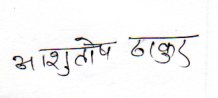 आशुतोष ठाकुर